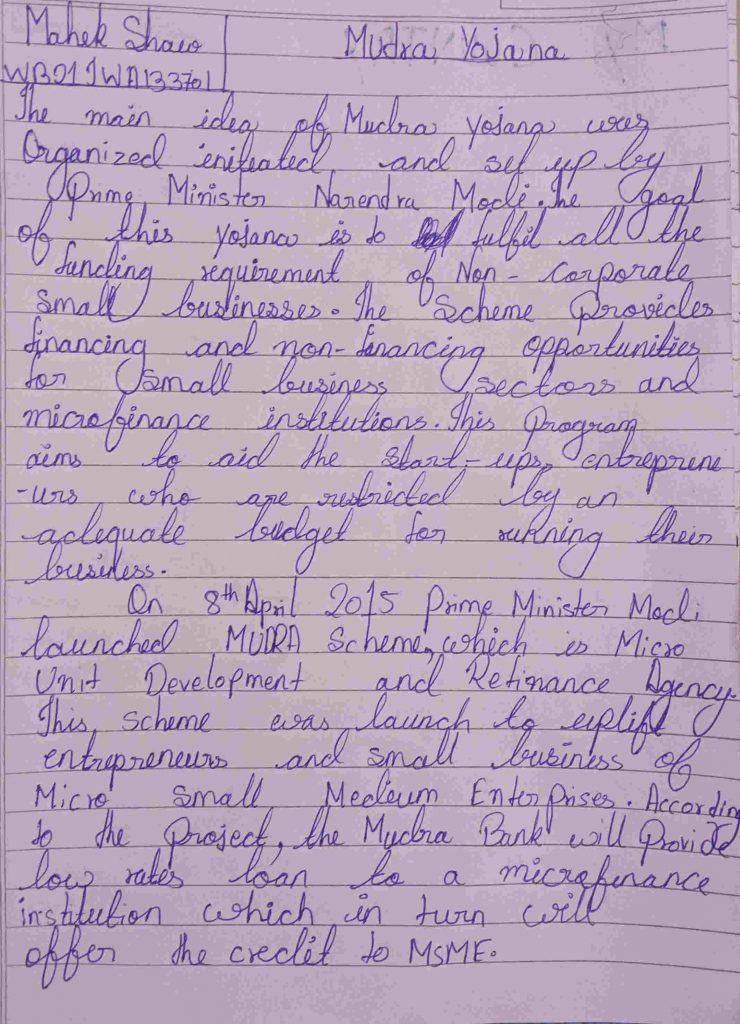 Mahek Shaw
Mudra Yojana
WB01JWA133701
The main idea of Mudra Yojana was
Organized initeated and set up by
Prime Minister Narendra Modi. The goal
of this yojana is to fulfil all the
funding requirement of Non - Corporate
Small businesses. The Scheme Provides
financing and non-financing opportunities
for Small business sectors and
microfinance institutions. This Program
aims to aid the start-ups, entreprene
-urs who are restricted by an
adequate budget for running their
business.
On 8th April 2015 Prime Minister Modi
launched MUDRA Scheme, which is Micro
Unit Development and Refinance Agency.
This scheme was launch to uplift
entrepreneurs and small business of
Micro Small Medium Enterprises. Accordin
to the project, the Mudra Bank will Provide
low rates loan to a microfinance
institution which in turn will
offer the credit to MSME.